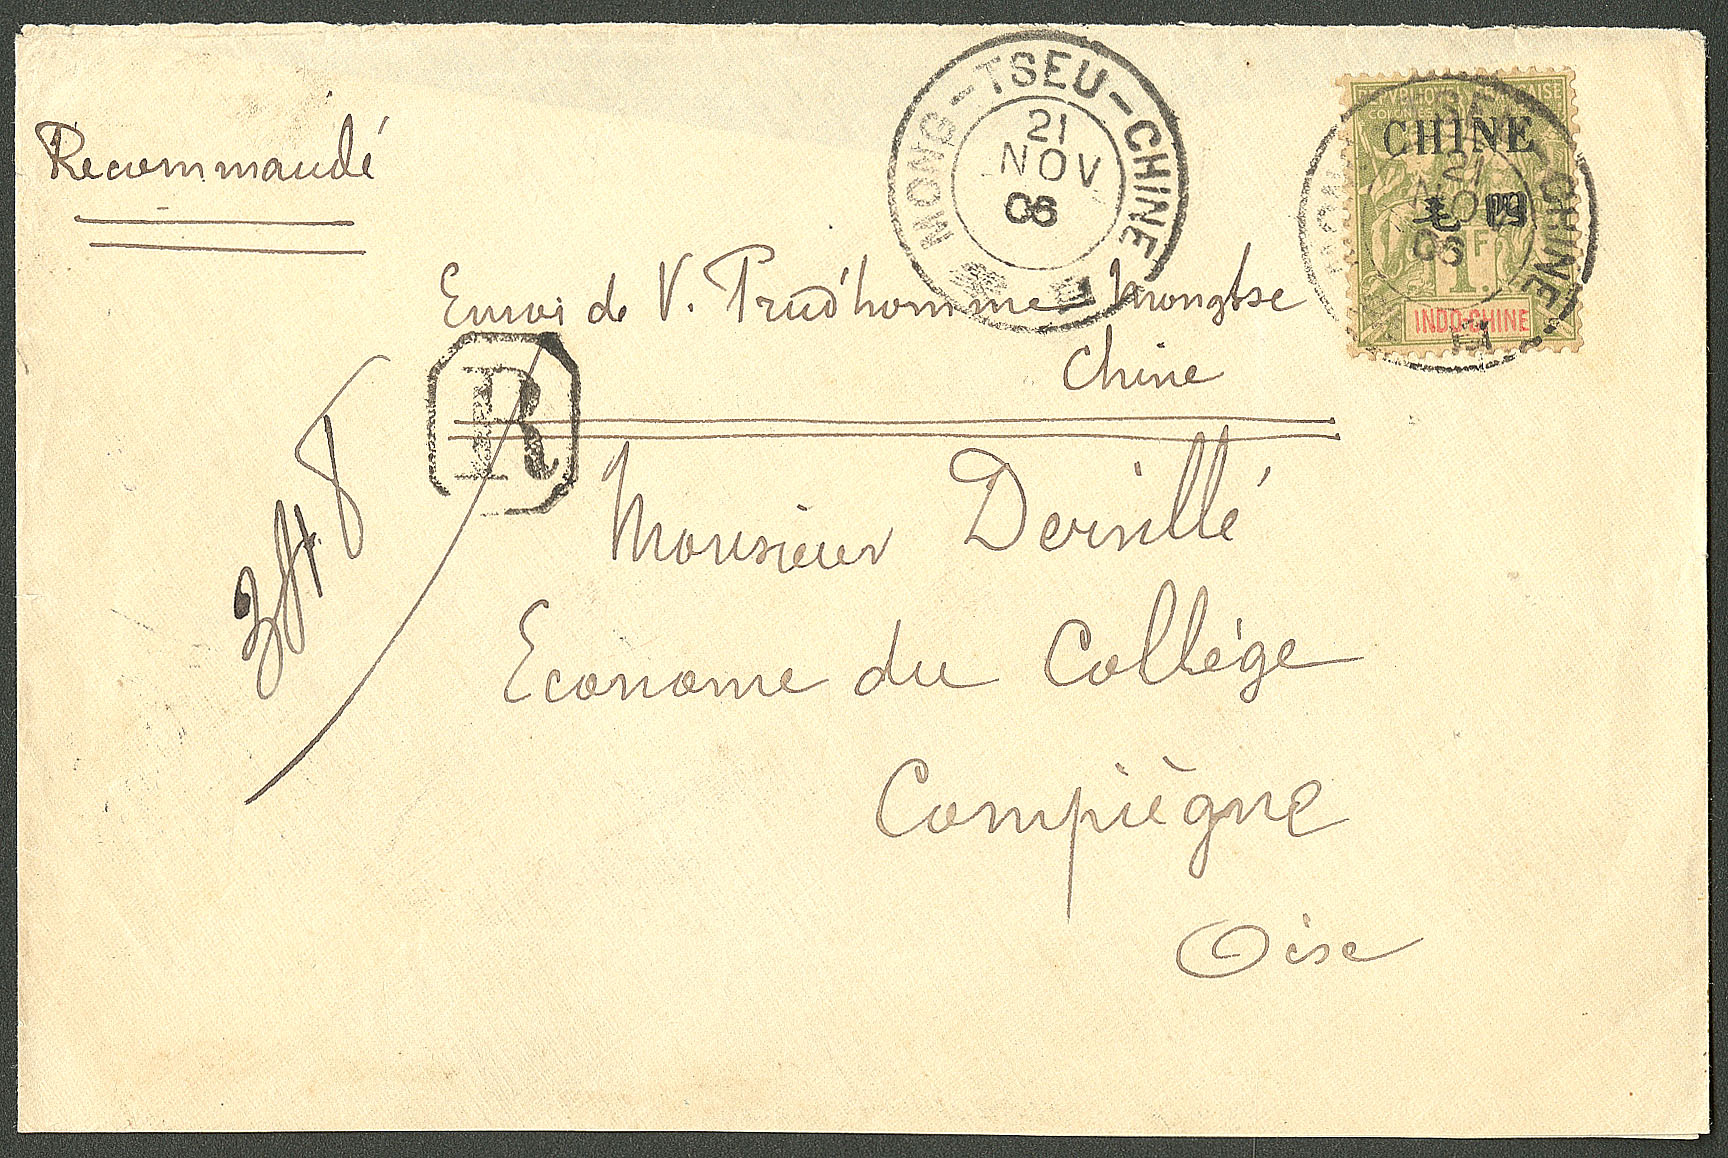 Recommandé
MONG-TSEU-CHINE
21
NOV
06
REPUBLIQUE FRANÇAISE
CHINE
21
NOV
06
毛 四
1 F.
INDO-CHINE
Envoi de V. Prud'homme Mongtse
Chine
R
348
Monsieur Dervillé
Econome du Collège
Compiègne
Oise